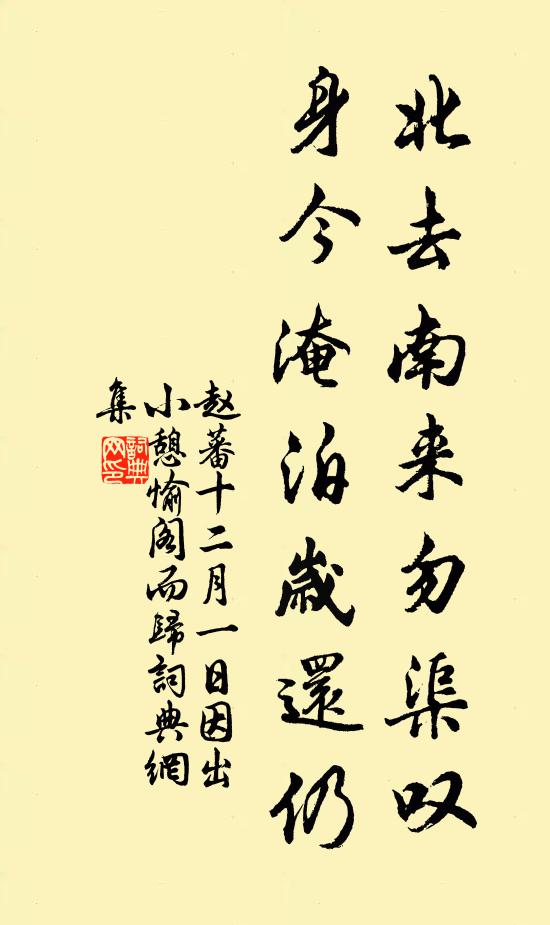 北去南来勿渠叹
身今淹泊岁還仍
赵蕃十二月一日因出
小憩愉阁而歸詞典網
集
詞典網